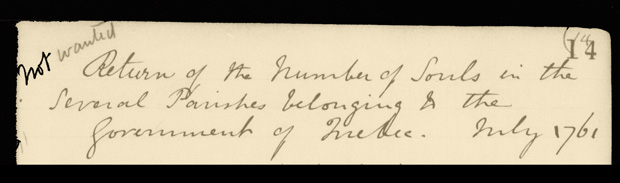 Not wanted
14
14
Return of the Number of Souls in the
Several Parishes belonging to the
Government of Quebec. July 1761